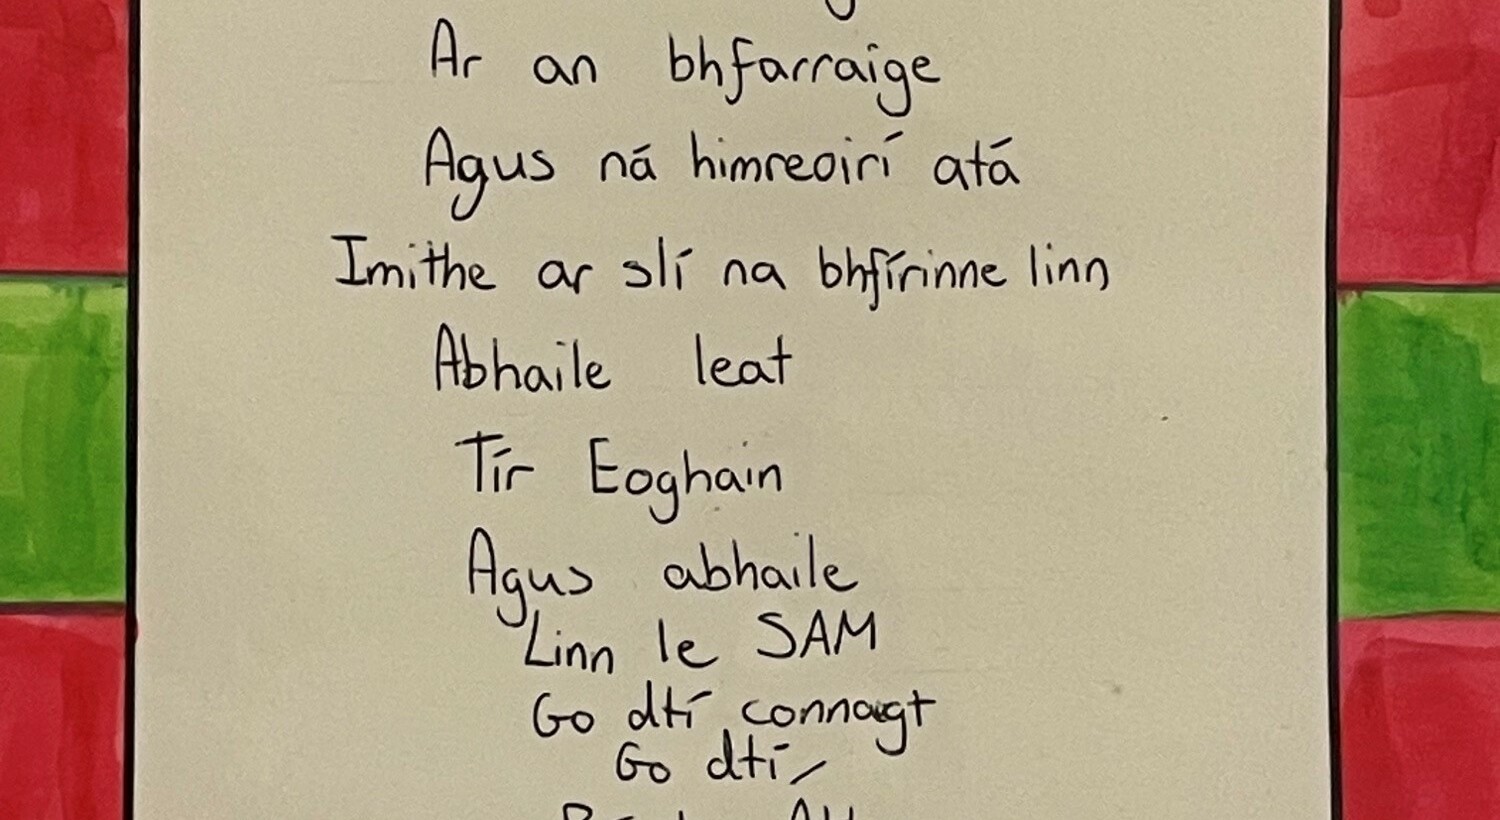 Ar an bhfarraige
Agus ná himreoirí atá
Imithe ar slí na bhfírinne linn
Abhaile leat
Tír Eoghain
Agus abhaile
Linn le SAM
Go dtí connagt
Go dtí